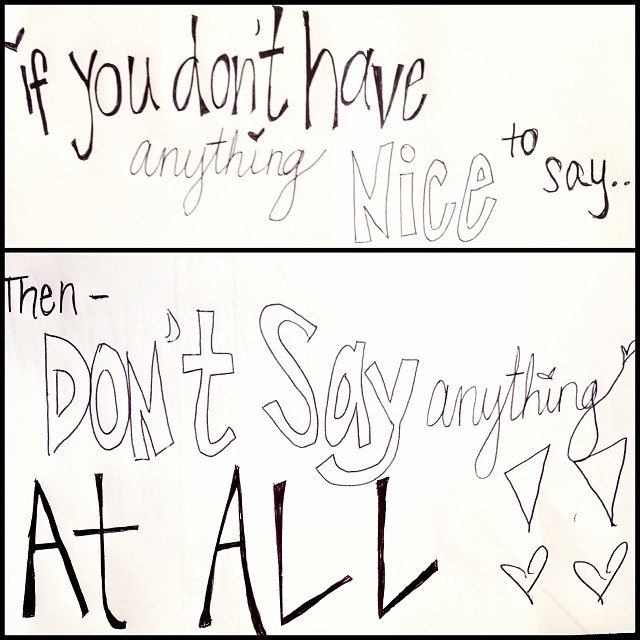 if you don't have
anything Nice to say..
Then -
DON't Say anything
At ALL